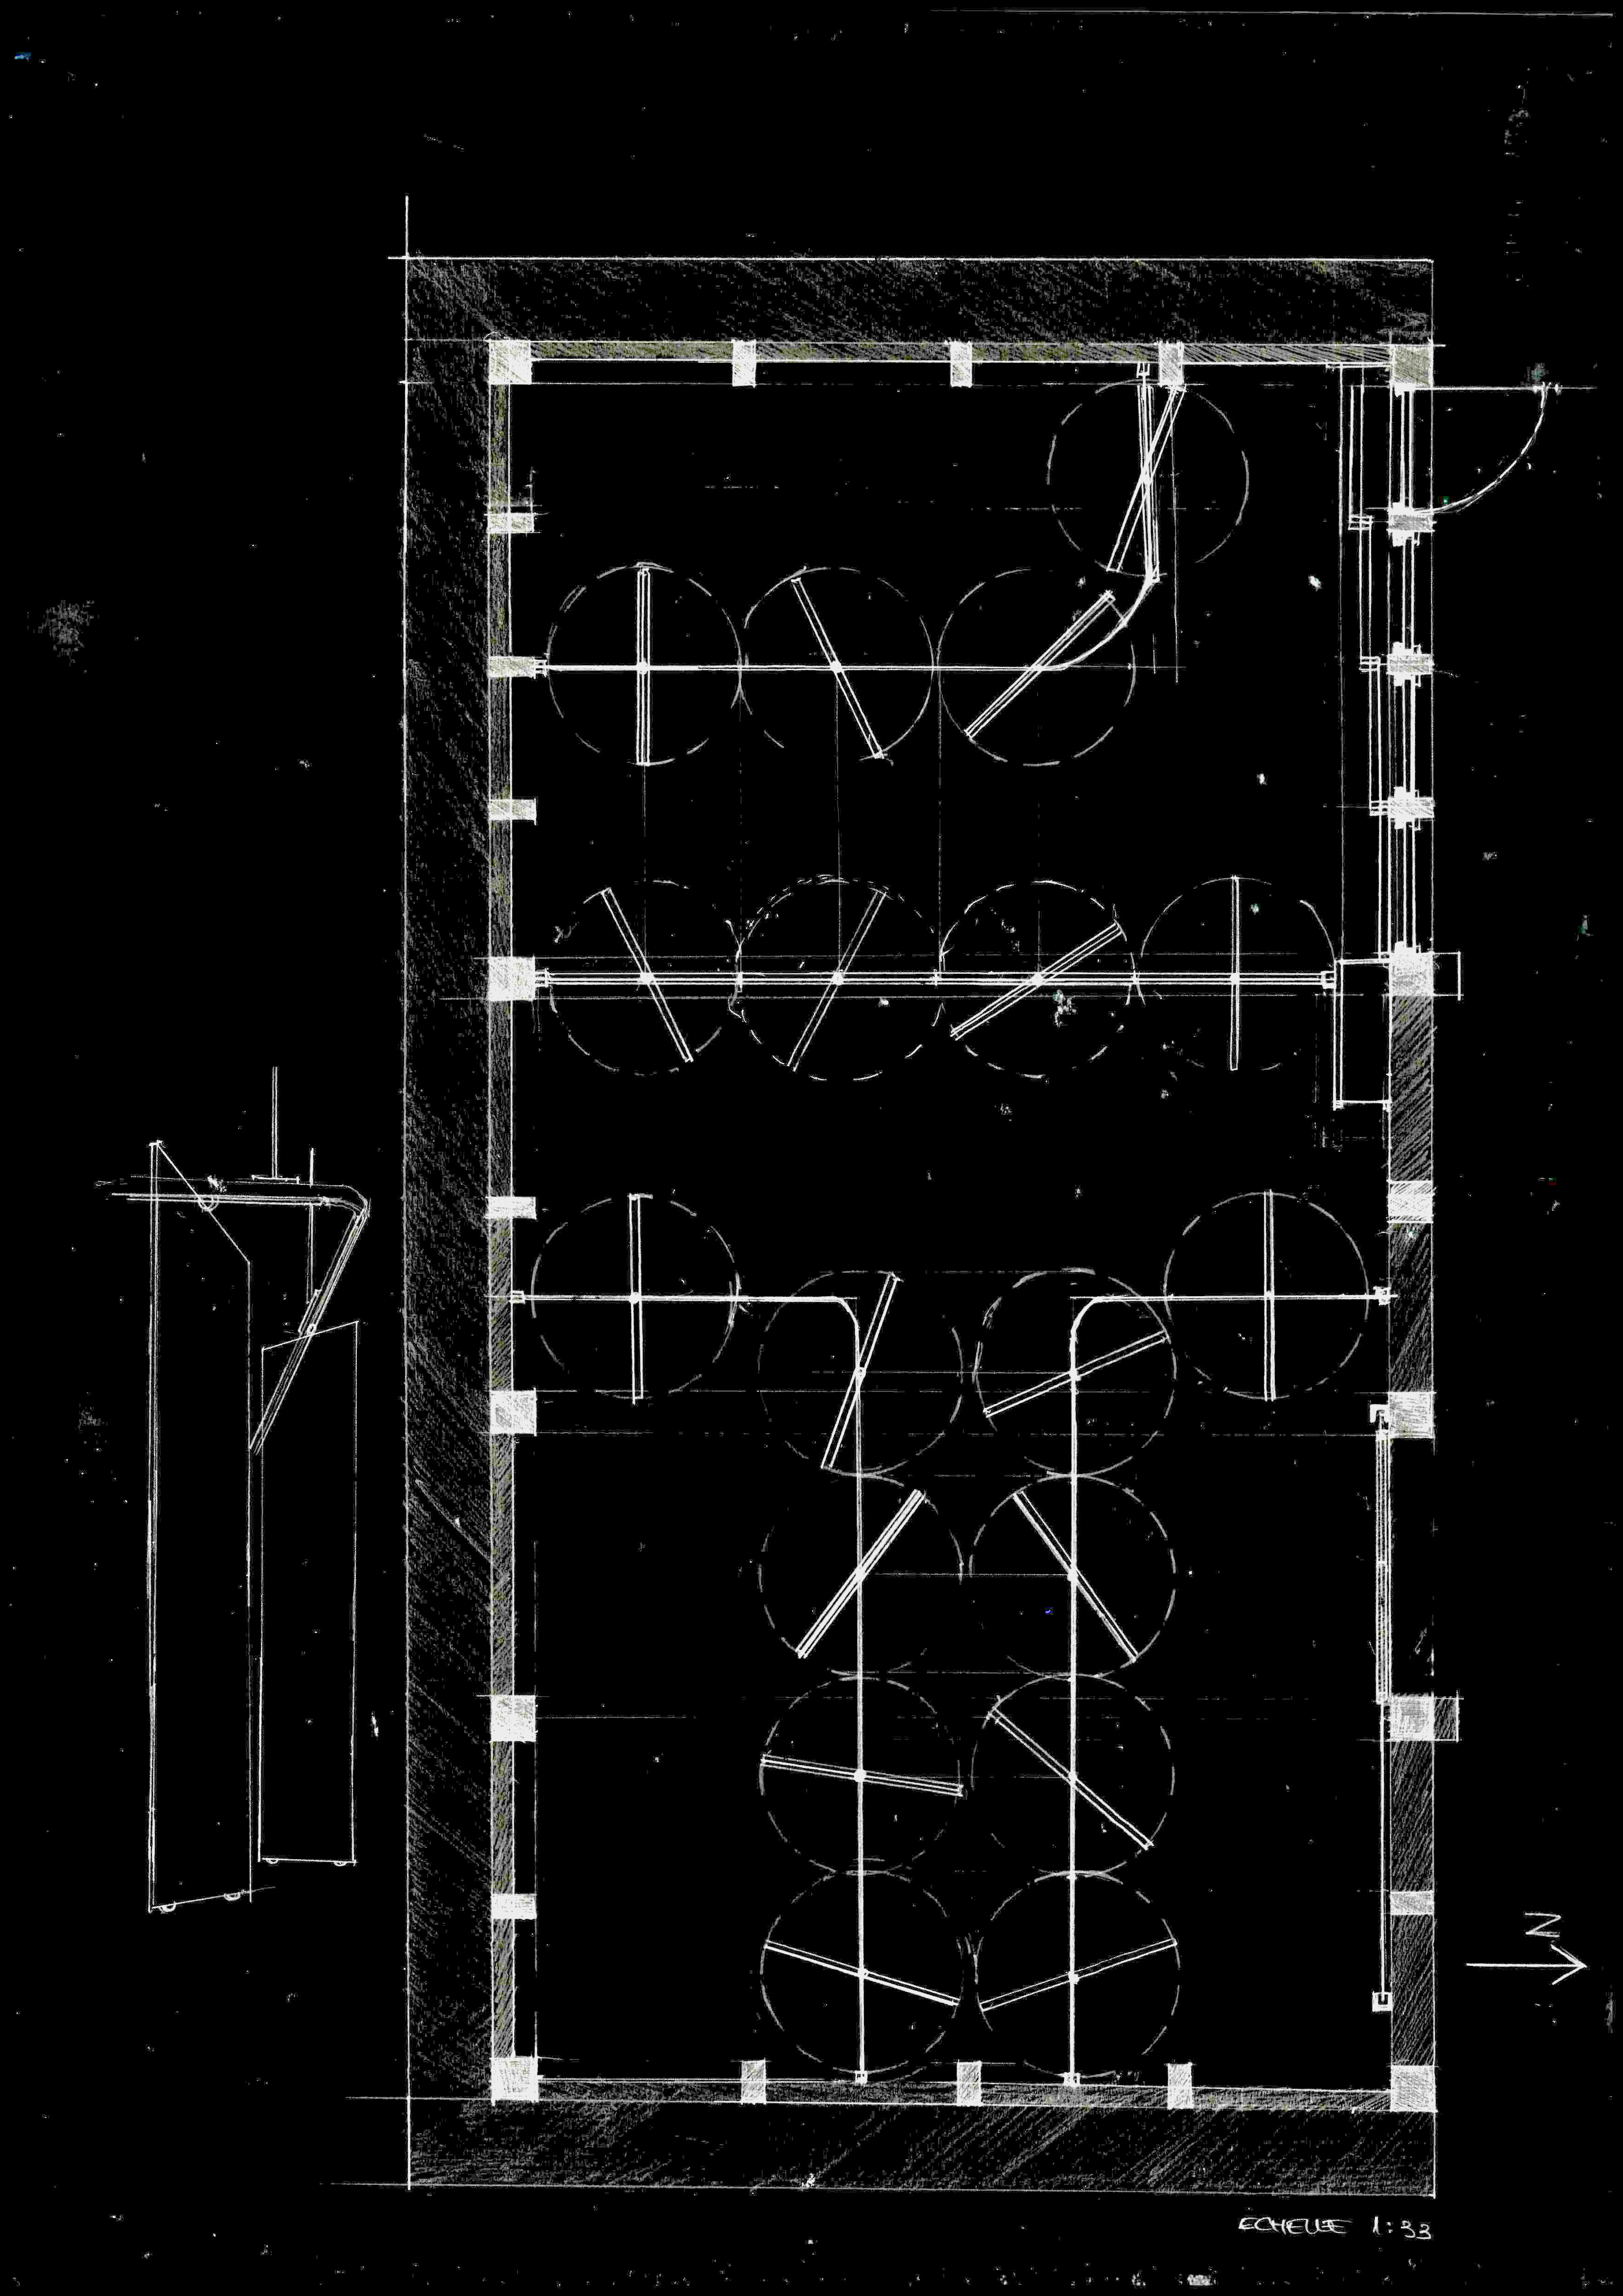 N
ECHELLE 1:33